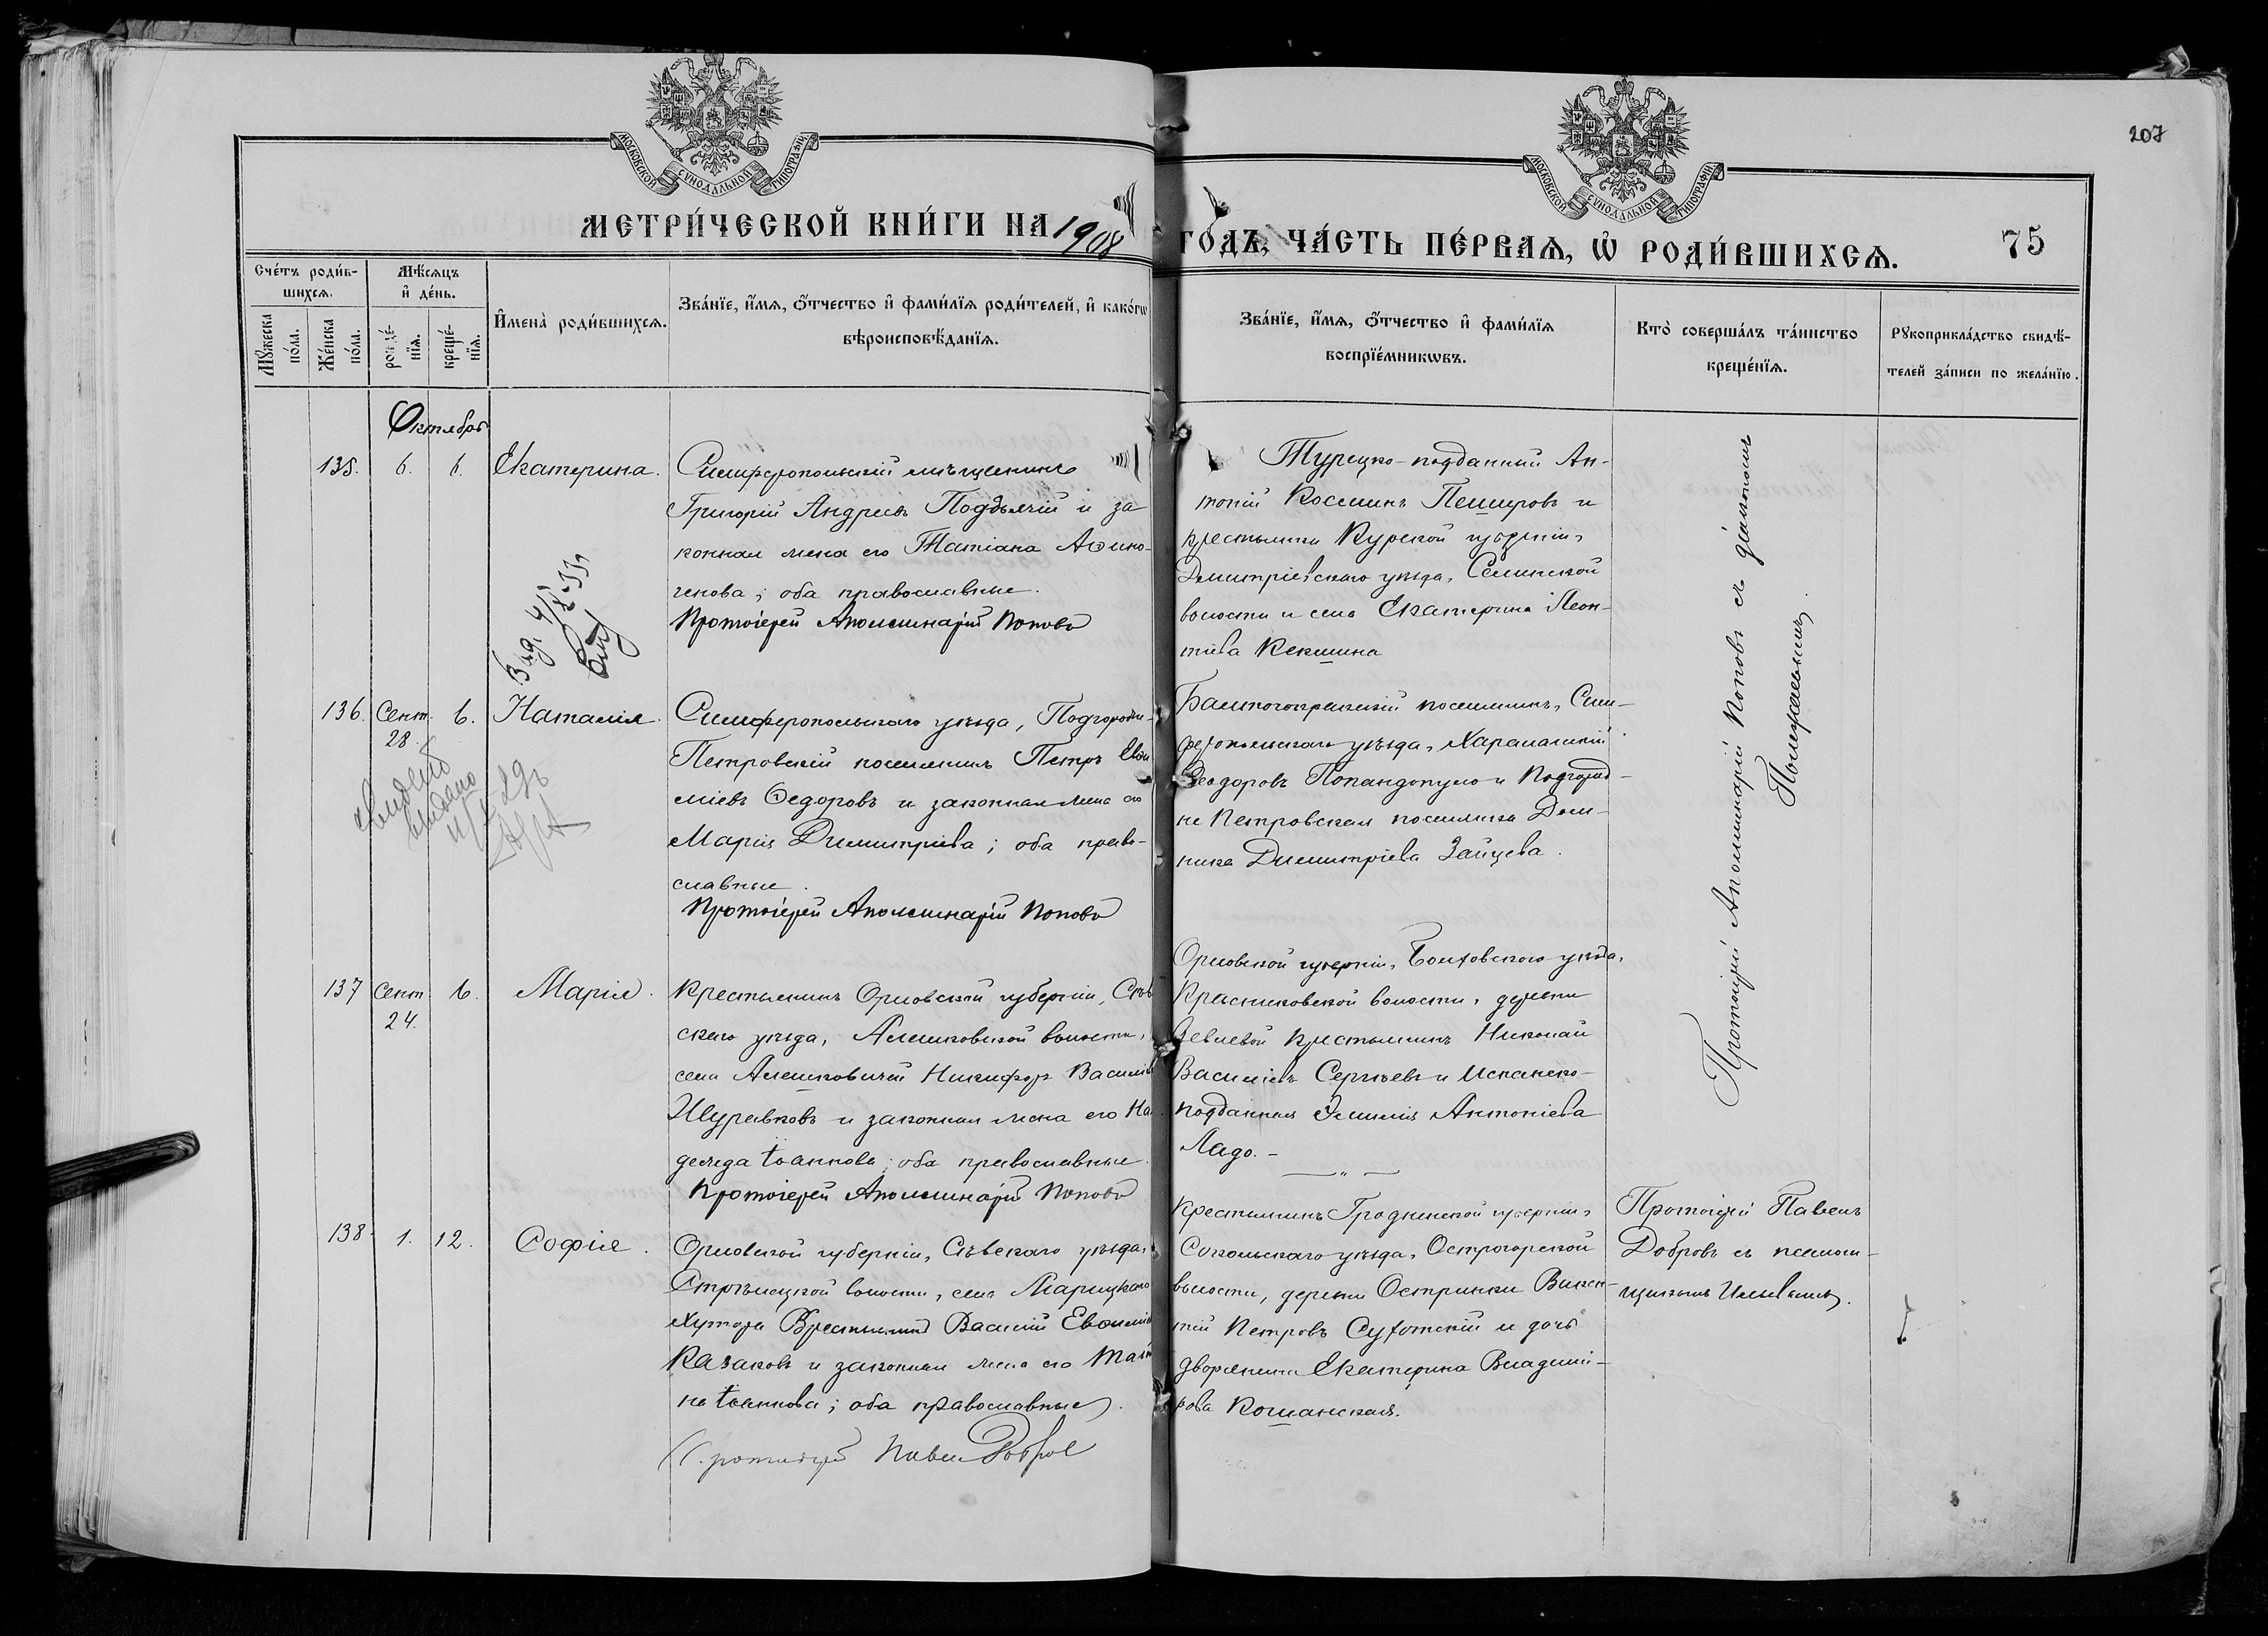 207
МОСКОВСКОЙ СѴНОДАЛЬНОЙ ТИПОГРАФІИ
МОСКОВСКОЙ СѴНОДАЛЬНОЙ ТИПОГРАФІИ
МЕТРИ́ЧЕСКОЙ КНИ́ГИ НА 1908
ГОДЪ, ЧА́СТЬ ПЕ́РВАѦ, Ѡ РОДИ́ВШИХСѦ.
75
Сче́тъ роди́в-
шихсѧ.
Мѣ́сяцъ
и҆ де́нь.
Мꙋ́жеска
по́ла.
Же́нска
по́ла.
рожде́-
нїѧ.
креще́-
нїѧ.
И҆мена̀ роди́вшихсѧ.
Зва́нїе, и҆́мѧ, ѻ҆́тчество и҆ фами́лїѧ роди́телей, и҆ како́гѡ
вѣроисповѣ́данїѧ.
Зва́нїе, и҆́мѧ, ѻ҆́тчество и҆ фами́лїѧ
воспрїе́мникѡвъ.
Кто̀ соверша́лъ та́инство
креще́нїѧ.
Рꙋкоприкла́дство свидѣ́-
телей за́писи по жела́нїю.
Октябрь
135. 6. 6. Екатерина.
Симферопольскій мѣщанинъ
Григорій Андреевъ Поддьячій и за
конная жена его Татіана Аѳино-
генова; оба православные.
Протоіерей Аполлинарій Поповъ
Турецко-подданный Ан-
тоній Косминъ Пешировъ и
крестьянка Курской губерніи,
Димитріевскаго уѣзда, Селинской
волости и села Екатерина Леон-
тіева Кекшина
Выд. 4/X-33г.
136. Сент. 28. 6. Наталія.
свидет.
выдано
Симферопольскаго уѣзда, Подгородн-
Петровскій поселянинъ Петръ Евѳи
міевъ Ѳедоровъ и законная жена его
Марія Димитріева; оба право-
славные.
Протоіерей Аполлинарій Поповъ
поселянинъ, Сим-
феропольскаго уѣзда, Харалампій
Ѳеодоровъ Попандопуло и Подгород-
не Петровская поселянка Дом-
ника Димитріева Зайцева.
137 Сент. 24. 6. Марія.
Крестьянинъ Орловской губерніи, Сѣв
скаго уѣзда, Алешковской волости,
села Алешковичей Никифоръ Василіев
Журавковъ и законная жена его На
дежда Іоаннова; оба православные.
Протоіерей Аполлинарій Поповъ
Орловской губерніи, Болховскаго уѣзда,
Красниковской волости, деревни
крестьянинъ Николай
Василіевъ Сергѣевъ и Испанско-
подданная Эмилія Антоніева
Ладо. -
— " —
Протоіерей Аполлинарій Поповъ съ діакономъ
Полежаевымъ.
138. 1. 12. Софія.
Орловской губерніи, Сѣвскаго уѣзда,
Стрѣлецкой волости, села Марицкаго
Хутора Крестьянинъ Василій Евѳиміев
Казаковъ и законная жена его Татіа
на Іоаннова; оба православные.
Протоіерей Павелъ Добровъ
Крестьянинъ Гродненской губерніи,
Сокольскаго уѣзда, Острогорской
волости, деревни Остринки Викен-
тій Петровъ Сухотскій и дочь
дворянина Екатерина Владимі-
рова Кошанская.
Протоіерей Павелъ
Добровъ съ псаломщ-
щикомъ Ильевымъ.